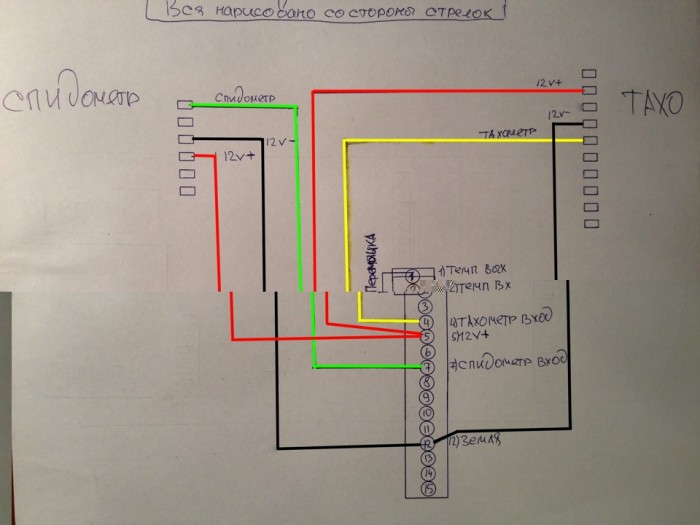 Вся нарисовано со стороны стрелок
СПИДОМЕТР
СПИДОМЕТР
12V+
ТАХО
12V-
12V-
ТАХОМЕТР
12V+
Перемычка
1
1) ТЕМП ВЫХ
2) ТЕМП ВХ
3
4
4) ТАХОМЕТР ВХОД
5
5) 12V+
6
7
7) СПИДОМЕТР ВХОД
8
9
10
11
12
12) ЗЕМЛЯ
13
14
15